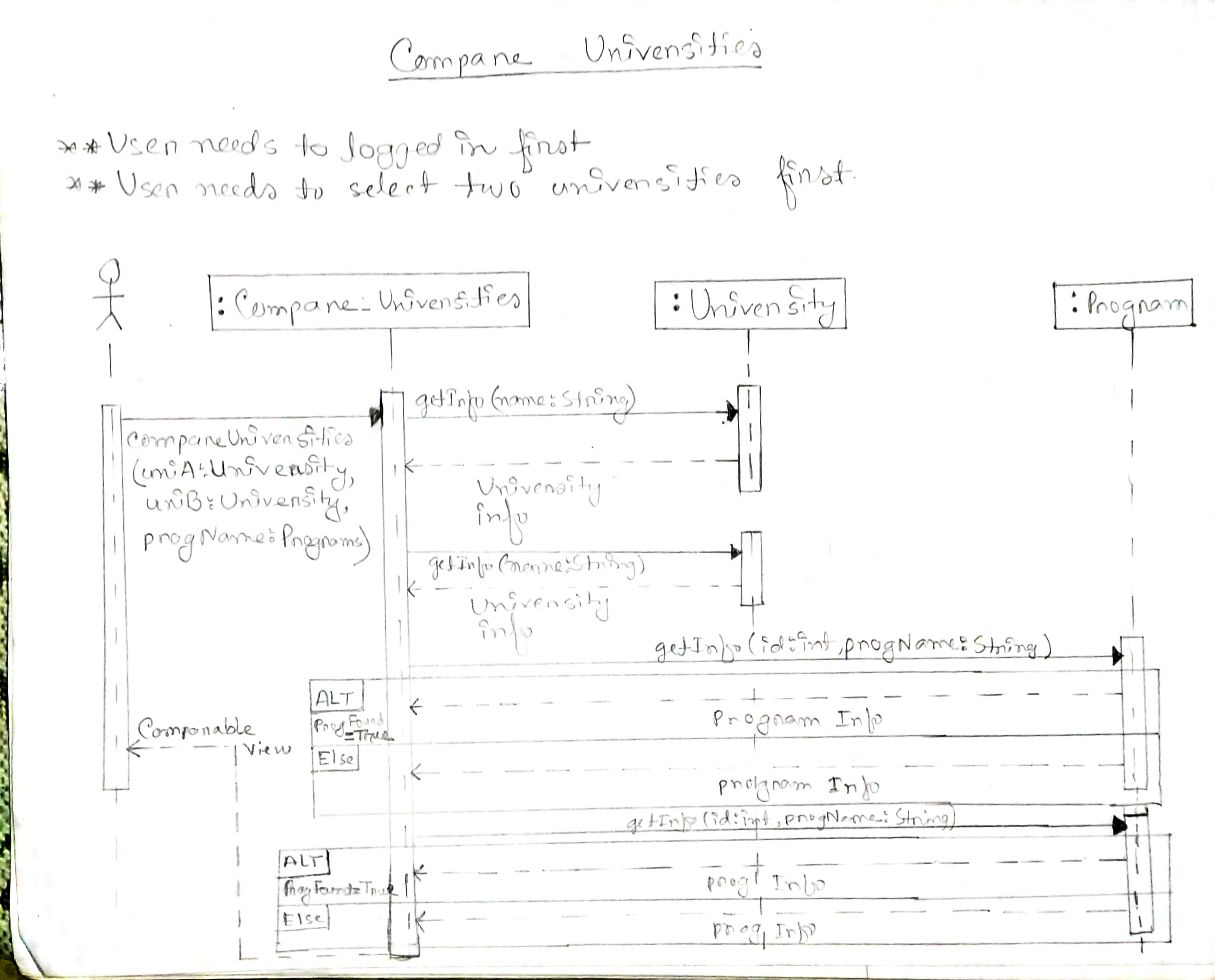 Compare Universities
** User needs to logged in first
** User needs to select two universities first.
: Compare-Universities
: University
: Program
getInfo (name: String)
compareUniversities
(uniA: University,
uniB: University,
progName: Programs)
University
info
getInfo (name: String)
University
info
getInfo (id: int, progName: String)
ALT
Prog Found
= True
Program Info
Comparable
View
Else
program Info
getInfo (id: int, progName: String)
ALT
Prog Found = True
prog Info
Else
prog Info